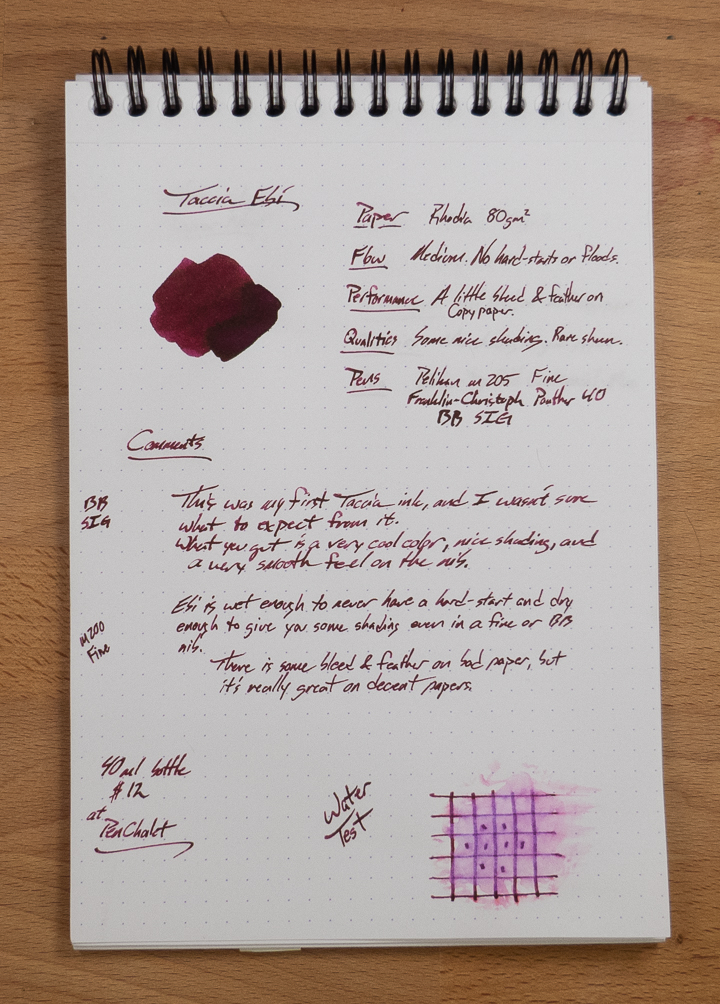 Taccia Ebi
Paper Rhodia 80gm²
Flow Medium. No hard-starts or floods.
Performance A little bleed & feather on
Copy paper.
Qualities Some nice shading. Rare sheen.
Pens Pelikan m205 Fine
Franklin-Christoph Panther 40
BB SIG
Comments
BB
SIG
This was my first Taccia ink, and I wasn't sure
what to expect from it.
What you get is a very cool color, nice shading, and
a very smooth feel on the nib.
m200
Fine
Ebi is wet enough to never have a hard-start and dry
enough to give you some shading even in a fine or BB
nib.
There is some bleed & feather on bad paper, but
it's really great on decent papers.
40ml bottle
$12
at
PenChalet
Water
Test